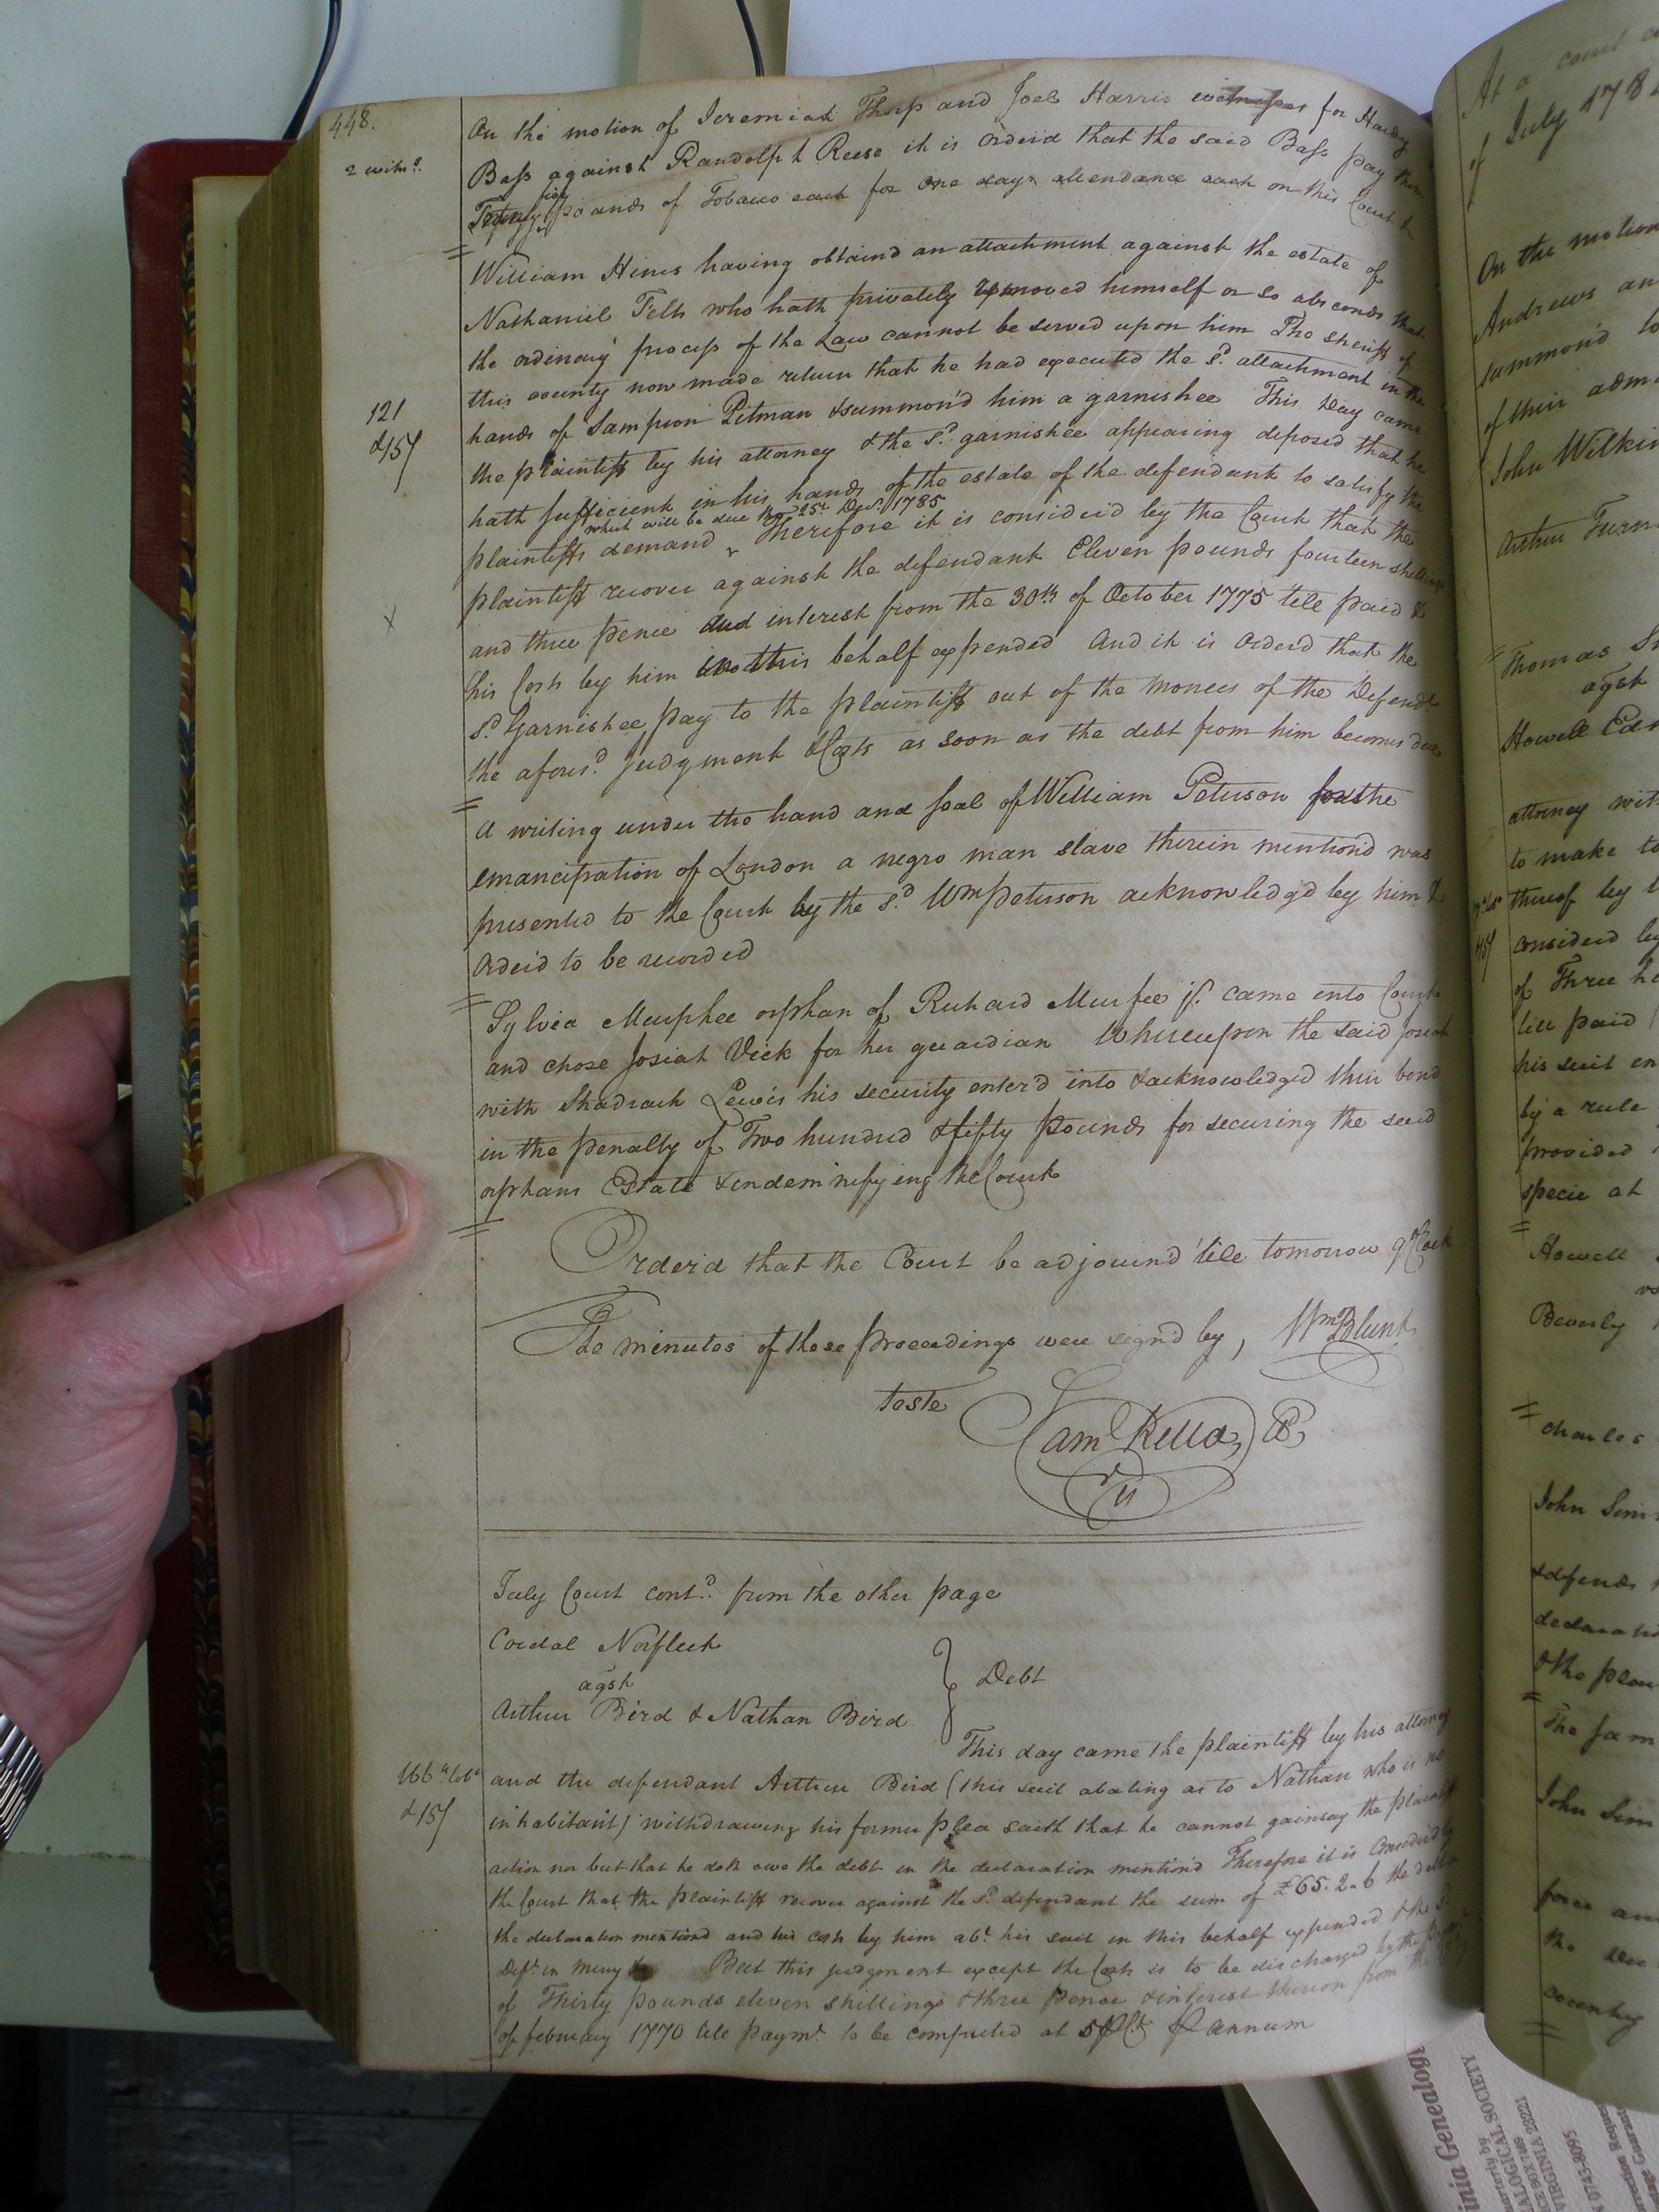 448.
2 witns.
On the motion of Jeremiah Thorp and Joel Harris witnesses for Hardy
Bass against Randolph Reese it is orderd that the said Bass pay them
five
pounds of Tobacco each for one days attendance each on this Court &
William Hines having obtaind an attachment against the estate of
Nathaniel Felts who hath privately removed himself or so absconds that
the ordinary process of the Law cannot be served upon him The sheriff of
this county now made return that he had executed the sd. attachment in the
121
&15/
hands of Sampson Pitman & summon'd him a garnishee This day came
the plaintiff by his attorney & the sd. garnishee appearing deposed that he
hath sufficient in his hands of the estate of the defendant to satisfy the
which will be due the 25th Decr. 1785
plaintiffs demand Therefore it is considerd by the Court that the
plaintiff recover against the defendant Eleven pounds fourteen shillings
and three pence and interest from the 30th of October 1775 till paid &
x
his Costs by him in this behalf expended And it is Orderd that the
sd. Garnishee pay to the plaintiff out of the monees of the Defendt
the aforesd. Judgment & Costs as soon as the debt from him becomes due
A writing under the hand and seal of William Peterson for the
emancipation of London a negro man slave therein mention'd was
presented to the Court by the sd. Wm Peterson acknowledg'd by him &
Orderd to be recorded
Sylvia Murphee orphan of Richard Murfee jr. came into Court
and chose Josiah Vick for her guardian Whereupon the said Josiah
with Shadrack Lewis his security enter'd into & acknowledged their bond
in the penalty of Two hundred & fifty pounds for securing the said
orphans Estate & indemnifying the Court
Orderd that the Court be adjournd till tomorrow 9 oClock
The minutes of these proceedings were sign'd by, Wm Blunt
teste
Saml Kello, CC
July Court contd. from the other page
Cordal Norfleet
agst
Debt
Arthur Bird & Nathan Bird
This day came the plaintiff by his attorney
166 "tobo
&15/
and the defendant Arthur Bird (this suit abating as to Nathan who is no
inhabitant) withdrawing his former plea saith that he cannot gainsay the plaintiffs
action nor but that he doth owe the debt in the declaration mention'd Therefore it is considerd by
the Court that the plaintiff recover against the sd. defendant the sum of £65. 2. 6 the debt
the declaration mentiond and his costs by him abt. his suit in this behalf expended & the sd.
Deft. in mercy &c But this judgment except the Costs is to be discharged by the
of Thirty pounds eleven shillings & three pence & interest thereon from the
of february 1770 till paymt. to be computed at 5 P Ct P annum
At a court
of July 178
On the motion
Andrews an
summon'd to
of their adm
John Wilkin
Arthur Turn
Thomas
agst
Howell Ed
attorney with
to make
thereof by
considerd by
of Three h
till paid
his suit in
by a rule
provided
specie at
Howell
vs
Beverly
Charles
John Sim
& defends
declarati
& the plai
The sam
John Sim
force an
the
county
inia Genealogi
quarterly by
LOGICAL SOCIETY
BOX 7469
VIRGINIA 23221
0743-8095